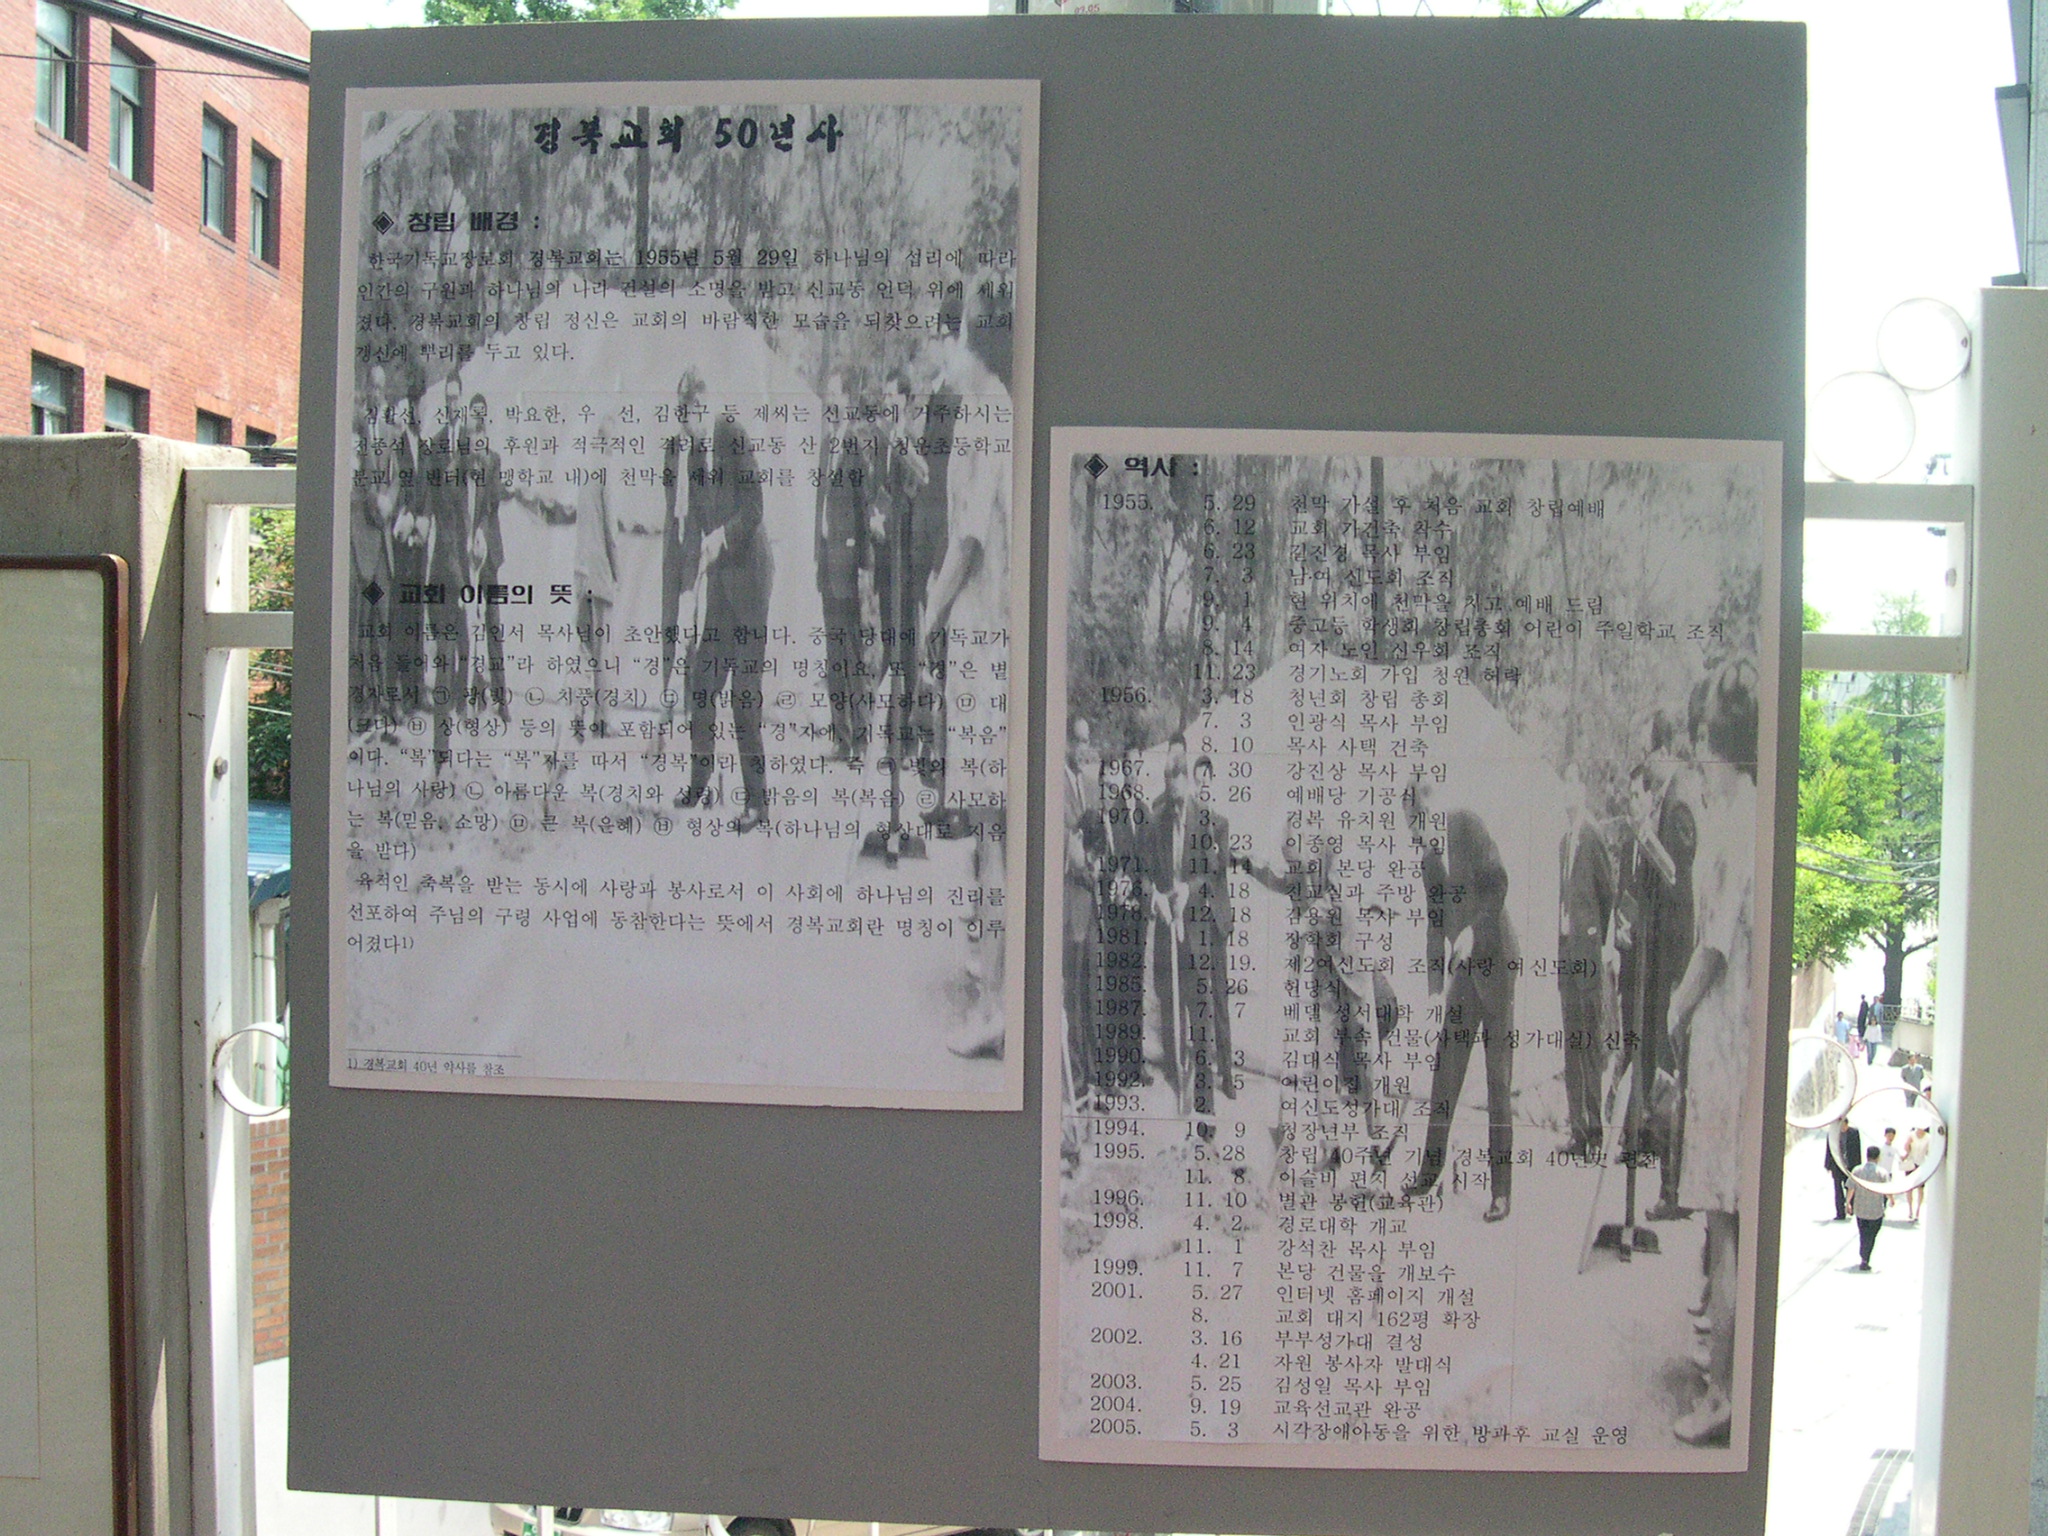 경복교회 50년사
◈ 창립 배경 :
한국기독교장로회 경복교회는 1955년 5월 29일 하나님의 섭리에 따라
인간의 구원과 하나님의 나라 건설의 소명을 받고 신교동 언덕 위에 세워
졌다. 경복교회의 창립 정신은 교회의 바람직한 모습을 되찾으려는 교회
갱신에 뿌리를 두고 있다.
신재복, 박요한, 우 선, 김한구 등 제씨는 신교동에 거주하시는
전종석 장로님의 후원과 적극적인 격려로 신교동 산 2번지 청운초등학교
분교 옆 빈터(현 맹학교 내)에 천막을 세워 교회를 창설함
◈ 교회 이름의 뜻 :
교회 이름은 김인서 목사님이 초안했다고 합니다. 중국 당대에 기독교가
처음 들어와 “경교”라 하였으니 “경”은 기독교의 명칭이요, 또 “경”은 볕
경자로서 ㉠ 광(빛) ㉡ 치풍(경치) ㉢ 명(밝음) ㉣ 모앙(사모하다) ㉤ 대
(크다) ㉥ 상(형상) 등의 뜻이 포함되어 있는 “경”자에, 기독교는 “복음”
이다. “복”되다는 “복”자를 따서 “경복”이라 칭하였다. 즉 ㉠ 빛의 복(하
나님의 사랑) ㉡ 아름다운 복(경치와 성령) ㉢ 밝음의 복(복음) ㉣ 사모하
는 복(믿음, 소망) ㉤ 큰 복(은혜) ㉥ 형상의 복(하나님의 형상대로 지음
을 받다)
육적인 축복을 받는 동시에 사랑과 봉사로서 이 사회에 하나님의 진리를
선포하여 주님의 구령 사업에 동참한다는 뜻에서 경복교회란 명칭이 이루
어졌다1)
1) 경복교회 40년 약사를 참조
◈ 역사 :
1955. 5. 29 천막 가설 후 처음 교회 창립예배
6. 12 교회 가건축 착수
6. 23 김진경 목사 부임
7. 3 남·여 신도회 조직
9. 1 현 위치에 천막을 치고 예배 드림
9. 4 중고등 학생회 창립총회 어린이 주일학교 조직
8. 14 여자 노인 신우회 조직
11. 23 경기노회 가입 청원 허락
1956. 3. 18 청년회 창립 총회
7. 3 인광식 목사 부임
8. 10 목사 사택 건축
1967. 7. 30 강진상 목사 부임
1968. 5. 26 예배당 기공식
1970. 3. 경복 유치원 개원
10. 23 이종영 목사 부임
1971. 11. 14 교회 본당 완공
1976. 4. 18 친교실과 주방 완공
1978. 12. 18 김용원 목사 부임
1981. 1. 18 장학회 구성
1982. 12. 19. 제2여신도회 조직(사랑 여신도회)
1985. 5. 26 헌당식
1987. 7. 7 베델 성서대학 개설
1989. 11. 교회 부속 건물(사택과 성가대실) 신축
1990. 6. 3 김대식 목사 부임
1992. 3. 5 어린이집 개원
1993. 2. 여신도성가대 조직
1994. 10. 9 청장년부 조직
1995. 5. 28 창립 40주년 기념 경복교회 40년史 편찬
11. 8 이슬비 편지 선교 시작
1996. 11. 10 별관 봉헌(교육관)
1998. 4. 2 경로대학 개교
11. 1 강석찬 목사 부임
1999. 11. 7 본당 건물을 개보수
2001. 5. 27 인터넷 홈페이지 개설
8. 교회 대지 162평 확장
2002. 3. 16 부부성가대 결성
4. 21 자원 봉사자 발대식
2003. 5. 25 김성일 목사 부임
2004. 9. 19 교육선교관 완공
2005. 5. 3 시각장애아동을 위한 방과후 교실 운영